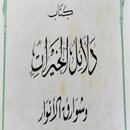 كتاب
دلائل الخيرات
وشوارق الأنوار